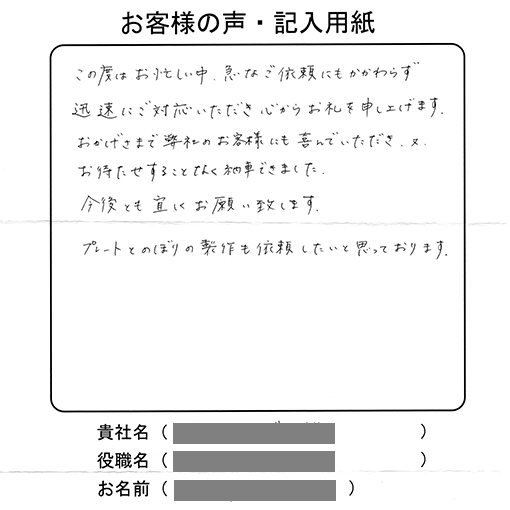 お客様の声・記入用紙
この度はお忙しい中、急なご依頼にもかかわらず
迅速にご対応いただき心からお礼を申し上げます。
おかげさまで弊社のお客様にも喜んでいただき、又、
お待たせすることなく納車できました。
今後とも宜しくお願い致します。
プレートとのぼりの製作も依頼したいと思っております。
貴社名（　　　）
役職名（　　　）
お名前（　　　）